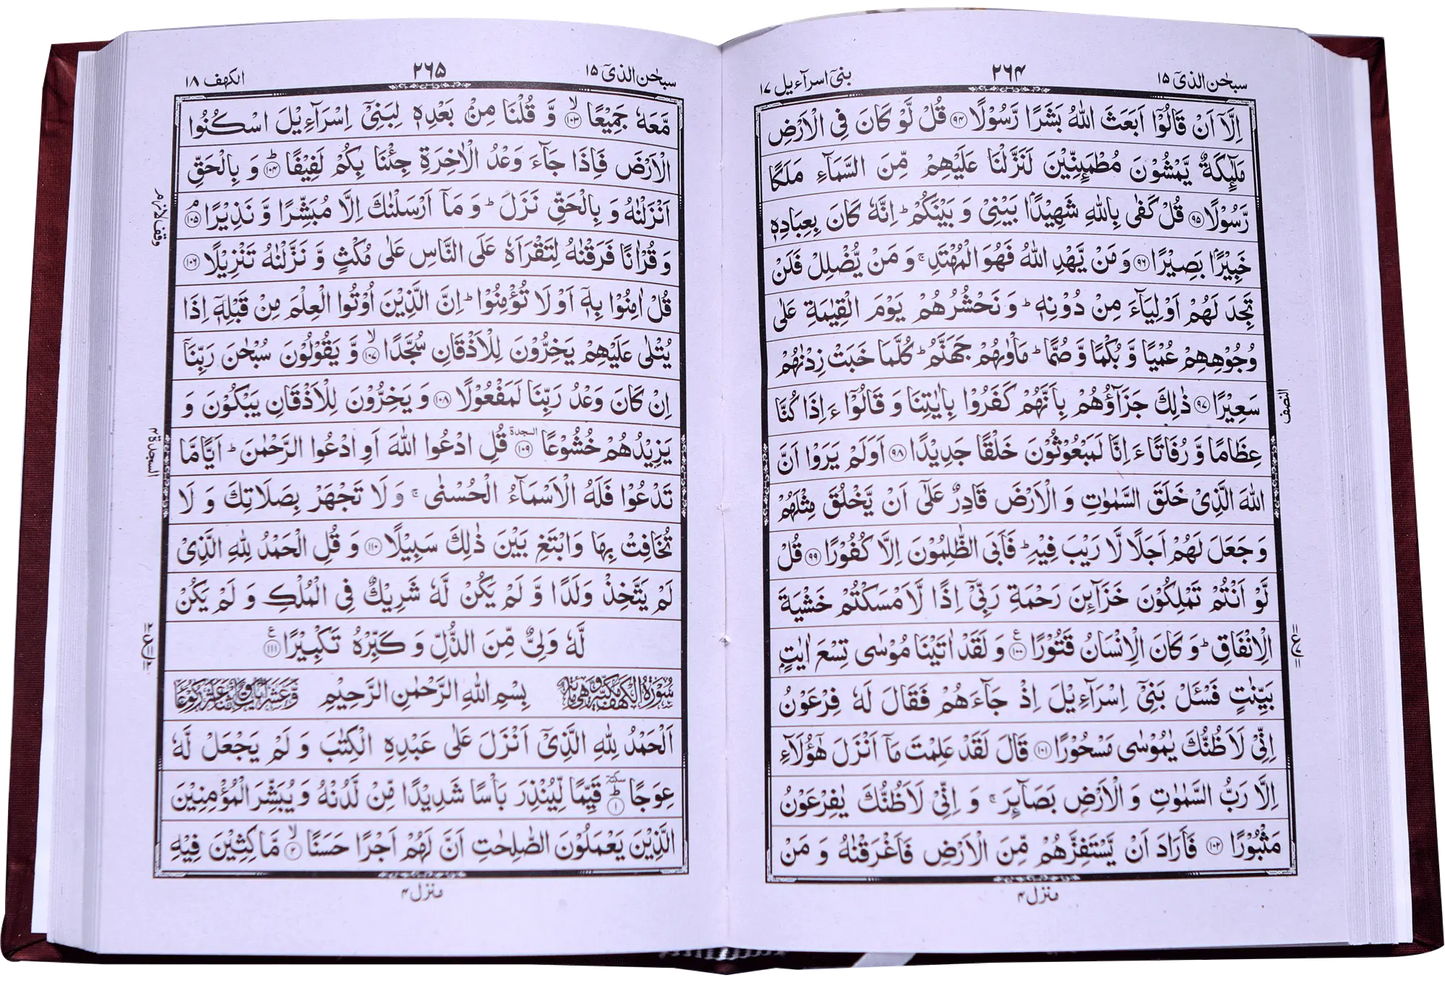 سبحٰن الذیٓ ۱۵
۲۶۴
بنیٓ اسرآءیل ۱۷
اِلَّاۤ اَنْ قَالُوْۤا اَبَعَثَ اللّٰهُ بَشَرًا رَّسُوْلًا ﴿۹۴﴾ قُلْ لَّوْ كَانَ فِی الْاَرْضِ
مَلٰٓىِٕكَةٌ یَّمْشُوْنَ مُطْمَىِٕنِّیْنَ لَنَزَّلْنَا عَلَیْهِمْ مِّنَ السَّمَآءِ مَلَكًا
رَّسُوْلًا ﴿۹۵﴾ قُلْ كَفٰی بِاللّٰهِ شَهِیْدًۢا بَیْنِیْ وَ بَیْنَكُمْ ؕ اِنَّهٗ كَانَ بِعِبَادِهٖ
خَبِیْرًۢا بَصِیْرًا ﴿۹۶﴾ وَ مَنْ یَّهْدِ اللّٰهُ فَهُوَ الْمُهْتَدِ ۚ وَ مَنْ یُّضْلِلْ فَلَنْ
تَجِدَ لَهُمْ اَوْلِیَآءَ مِنْ دُوْنِهٖ ؕ وَ نَحْشُرُهُمْ یَوْمَ الْقِیٰمَةِ عَلٰی
وُجُوْهِهِمْ عُمْیًا وَّ بُكْمًا وَّ صُمًّا ؕ مَاْوٰىهُمْ جَهَنَّمُ ؕ كُلَّمَا خَبَتْ زِدْنٰهُمْ
سَعِیْرًا ﴿۹۷﴾ ذٰلِكَ جَزَآؤُهُمْ بِاَنَّهُمْ كَفَرُوْا بِاٰیٰتِنَا وَ قَالُوْۤا ءَاِذَا كُنَّا
النصف
عِظَامًا وَّ رُفَاتًا ءَاِنَّا لَمَبْعُوْثُوْنَ خَلْقًا جَدِیْدًا ﴿۹۸﴾ اَوَلَمْ یَرَوْا اَنَّ
اللّٰهَ الَّذِیْ خَلَقَ السَّمٰوٰتِ وَ الْاَرْضَ قَادِرٌ عَلٰۤی اَنْ یَّخْلُقَ مِثْلَهُمْ
وَ جَعَلَ لَهُمْ اَجَلًا لَّا رَیْبَ فِیْهِ ؕ فَاَبَی الظّٰلِمُوْنَ اِلَّا كُفُوْرًا ﴿۹۹﴾ قُلْ
لَّوْ اَنْتُمْ تَمْلِكُوْنَ خَزَآىِٕنَ رَحْمَةِ رَبِّیْۤ اِذًا لَّاَمْسَكْتُمْ خَشْیَةَ
الْاِنْفَاقِ ؕ وَ كَانَ الْاِنْسَانُ قَتُوْرًا ﴿۱۰۰﴾ وَ لَقَدْ اٰتَیْنَا مُوْسٰی تِسْعَ اٰیٰتٍۭ
بَیِّنٰتٍ فَسْـَٔلْ بَنِیْۤ اِسْرَآءِیْلَ اِذْ جَآءَهُمْ فَقَالَ لَهٗ فِرْعَوْنُ
اِنِّیْ لَاَظُنُّكَ یٰمُوْسٰی مَسْحُوْرًا ﴿۱۰۱﴾ قَالَ لَقَدْ عَلِمْتَ مَاۤ اَنْزَلَ هٰۤؤُلَآءِ
اِلَّا رَبُّ السَّمٰوٰتِ وَ الْاَرْضِ بَصَآىِٕرَ ۚ وَ اِنِّیْ لَاَظُنُّكَ یٰفِرْعَوْنُ
مَثْبُوْرًا ﴿۱۰۲﴾ فَاَرَادَ اَنْ یَّسْتَفِزَّهُمْ مِّنَ الْاَرْضِ فَاَغْرَقْنٰهُ وَ مَنْ
منزل ۴
سبحٰن الذیٓ ۱۵
۲۶۵
الكهف ۱۸
مَّعَهٗ جَمِیْعًا ﴿۱۰۳﴾ ۙ وَّ قُلْنَا مِنْۢ بَعْدِهٖ لِبَنِیْۤ اِسْرَآءِیْلَ اسْكُنُوا
الْاَرْضَ فَاِذَا جَآءَ وَعْدُ الْاٰخِرَةِ جِئْنَا بِكُمْ لَفِیْفًا ﴿۱۰۴﴾ ؕ وَ بِالْحَقِّ
اَنْزَلْنٰهُ وَ بِالْحَقِّ نَزَلَ ؕ وَ مَاۤ اَرْسَلْنٰكَ اِلَّا مُبَشِّرًا وَّ نَذِیْرًا ﴿۱۰۵﴾ ۘ
وقف لازم
وَ قُرْاٰنًا فَرَقْنٰهُ لِتَقْرَاَهٗ عَلَی النَّاسِ عَلٰی مُكْثٍ وَّ نَزَّلْنٰهُ تَنْزِیْلًا ﴿۱۰۶﴾
قُلْ اٰمِنُوْا بِهٖۤ اَوْ لَا تُؤْمِنُوْا ؕ اِنَّ الَّذِیْنَ اُوْتُوا الْعِلْمَ مِنْ قَبْلِهٖۤ اِذَا
یُتْلٰی عَلَیْهِمْ یَخِرُّوْنَ لِلْاَذْقَانِ سُجَّدًا ﴿۱۰۷﴾ ۙ وَّ یَقُوْلُوْنَ سُبْحٰنَ رَبِّنَاۤ
اِنْ كَانَ وَعْدُ رَبِّنَا لَمَفْعُوْلًا ﴿۱۰۸﴾ وَ یَخِرُّوْنَ لِلْاَذْقَانِ یَبْكُوْنَ وَ
یَزِیْدُهُمْ خُشُوْعًا ﴿۱۰۹﴾ السجدة قُلِ ادْعُوا اللّٰهَ اَوِ ادْعُوا الرَّحْمٰنَ ؕ اَیًّا مَّا
السجدة ۴
تَدْعُوْا فَلَهُ الْاَسْمَآءُ الْحُسْنٰی ۚ وَ لَا تَجْهَرْ بِصَلَاتِكَ وَ لَا
تُخَافِتْ بِهَا وَ ابْتَغِ بَیْنَ ذٰلِكَ سَبِیْلًا ﴿۱۱۰﴾ وَ قُلِ الْحَمْدُ لِلّٰهِ الَّذِیْ
لَمْ یَتَّخِذْ وَلَدًا وَّ لَمْ یَكُنْ لَّهٗ شَرِیْكٌ فِی الْمُلْكِ وَ لَمْ یَكُنْ
لَّهٗ وَلِیٌّ مِّنَ الذُّلِّ وَ كَبِّرْهُ تَكْبِیْرًا ﴿۱۱۱﴾
بِسْمِ اللّٰهِ الرَّحْمٰنِ الرَّحِیْمِ
اَلْحَمْدُ لِلّٰهِ الَّذِیْۤ اَنْزَلَ عَلٰی عَبْدِهِ الْكِتٰبَ وَ لَمْ یَجْعَلْ لَّهٗ
عِوَجًا ﴿۱﴾ ؕ سكتة قَیِّمًا لِّیُنْذِرَ بَاْسًا شَدِیْدًا مِّنْ لَّدُنْهُ وَ یُبَشِّرَ الْمُؤْمِنِیْنَ
الَّذِیْنَ یَعْمَلُوْنَ الصّٰلِحٰتِ اَنَّ لَهُمْ اَجْرًا حَسَنًا ﴿۲﴾ ۙ مَّاكِثِیْنَ فِیْهِ
منزل ۴